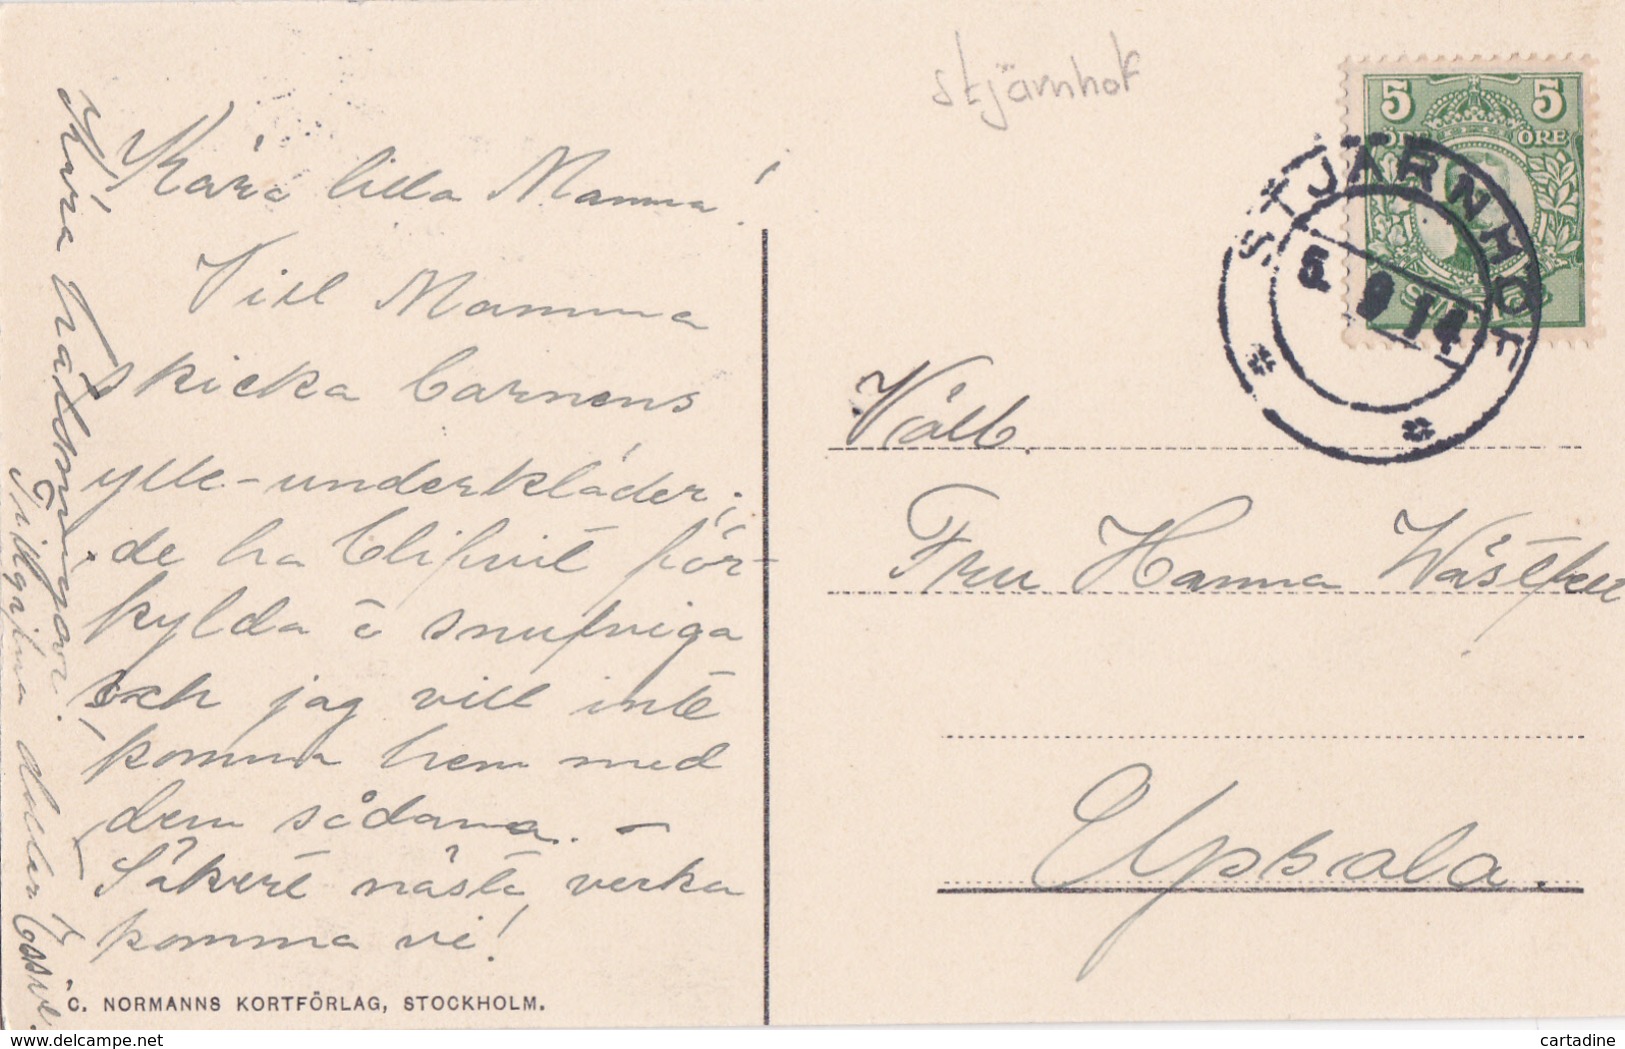 Stjärnhof
5 5
ÖRE ÖRE
STJÄRNHOF
5. 9 14
Kära lilla Mamma!
Vill Mamma
skicka barnens
ylle-underkläder;
de ha blifvit för-
kylda o snufviga
och jag vill inte
komma hem med
dem sådana. –
Säkert nästa vecka
komma vi!
Kära hälsningar.
Tillgifna
Wälb.
Fru Hanna Wästfelt
Upsala.
C. NORMANNS KORTFÖRLAG, STOCKHOLM.
delcampe.net
cartadine